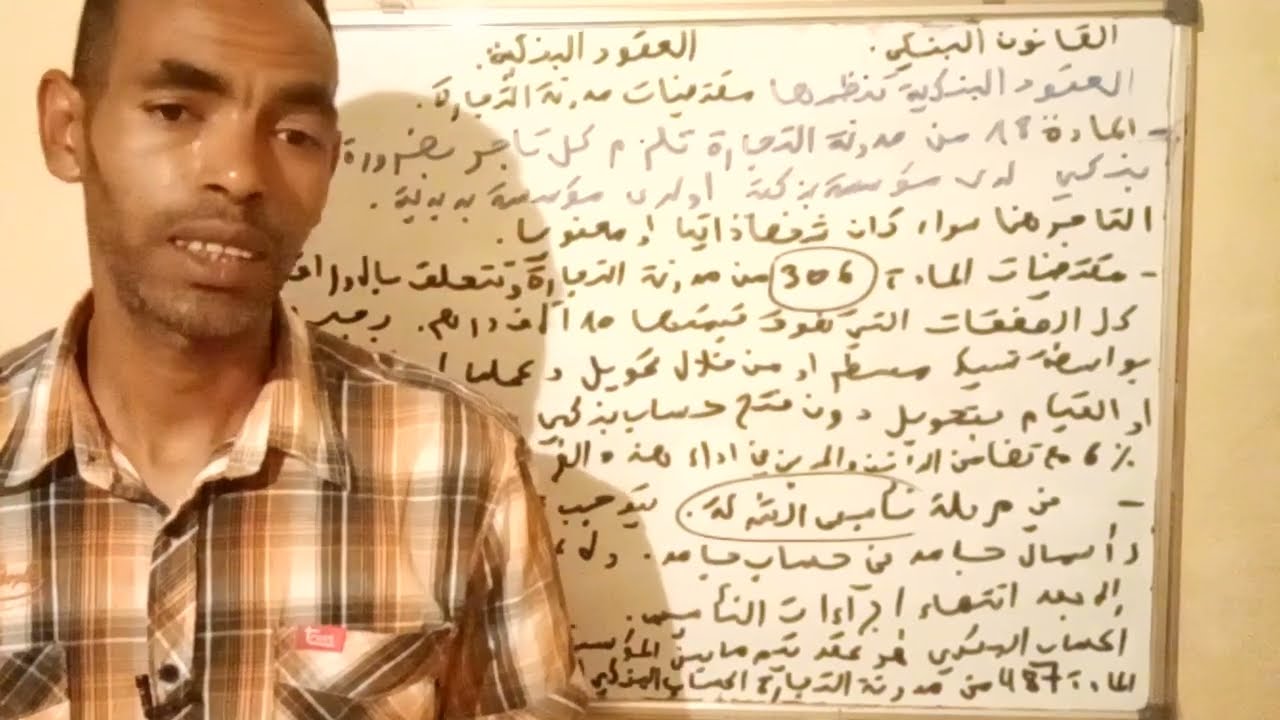 القانون البنكي. العقود البنكية:
العقود البنكية تنظمها مقتضيات مدونة التجارة.
- المادة 18 من مدونة التجارة تلزم كل تاجر بضرورة
بنكي لدى مؤسسة بنكية او لدى مؤسسة بريدية.
التاجر هنا سواء كان شخصا ذاتيا او معنويا.
- مقتضيات المادة 306 من مدونة التجارة وتتعلق
كل الصفقات التي تفوق قيمتها 10 آلاف درهم. يجب
بواسطة شيك مسطر او من خلال تحويل
او القيام بتحويل دون فتح حساب بنكي
6 % مع تضامن الدائنين والمدينين في اداء هذه
- في مرحلة تأسيس الشركة. يتوجب
رأسمال جامد في حساب جامد.
إلا بعد انتهاء اجراءات التأسيس.
الحساب البنكي هو عقد يتم ما بين
المادة 487 من مدونة التجارة الحساب البنكي